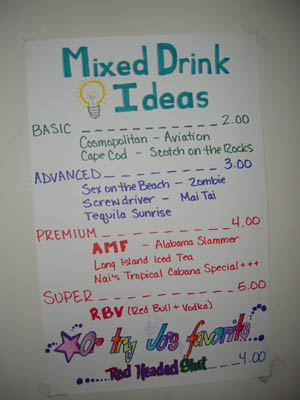 Mixed Drink
Ideas
BASIC _ _ _ _ _ _ _ _ _ _ _ 2.00
Cosmopolitan - Aviation
Cape Cod - Scotch on the Rocks
ADVANCED _ _ _ _ _ _ _ _ _ 3.00
Sex on the Beach - Zombie
Screwdriver - Mai Tai
Tequila Sunrise
PREMIUM _ _ _ _ _ _ _ _ _ 4.00
AMF - Alabama Slammer
Long Island Iced Tea
Nai's Tropical Cabana Special +++
SUPER _ _ _ _ _ _ _ _ _ _ 5.00
RBV (Red Bull + Vodka)
Or try Jo's favorite
Red Headed Slut _ _ _ 4.00